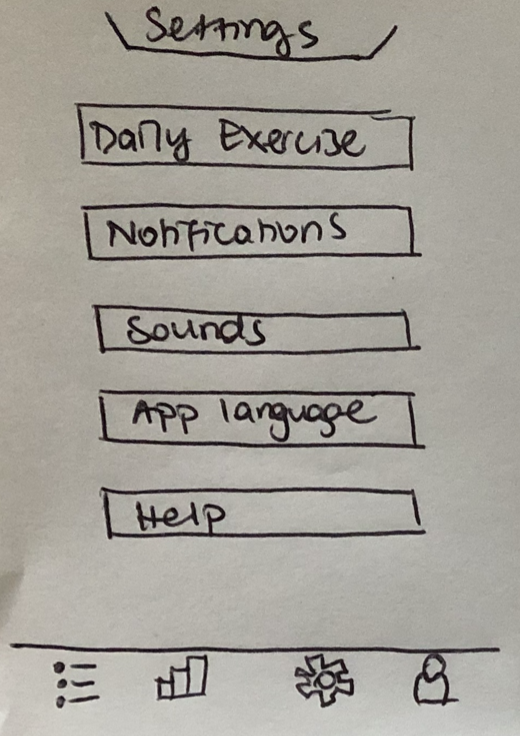 Settings
Daily Exercise
Notifications
Sounds
App language
Help